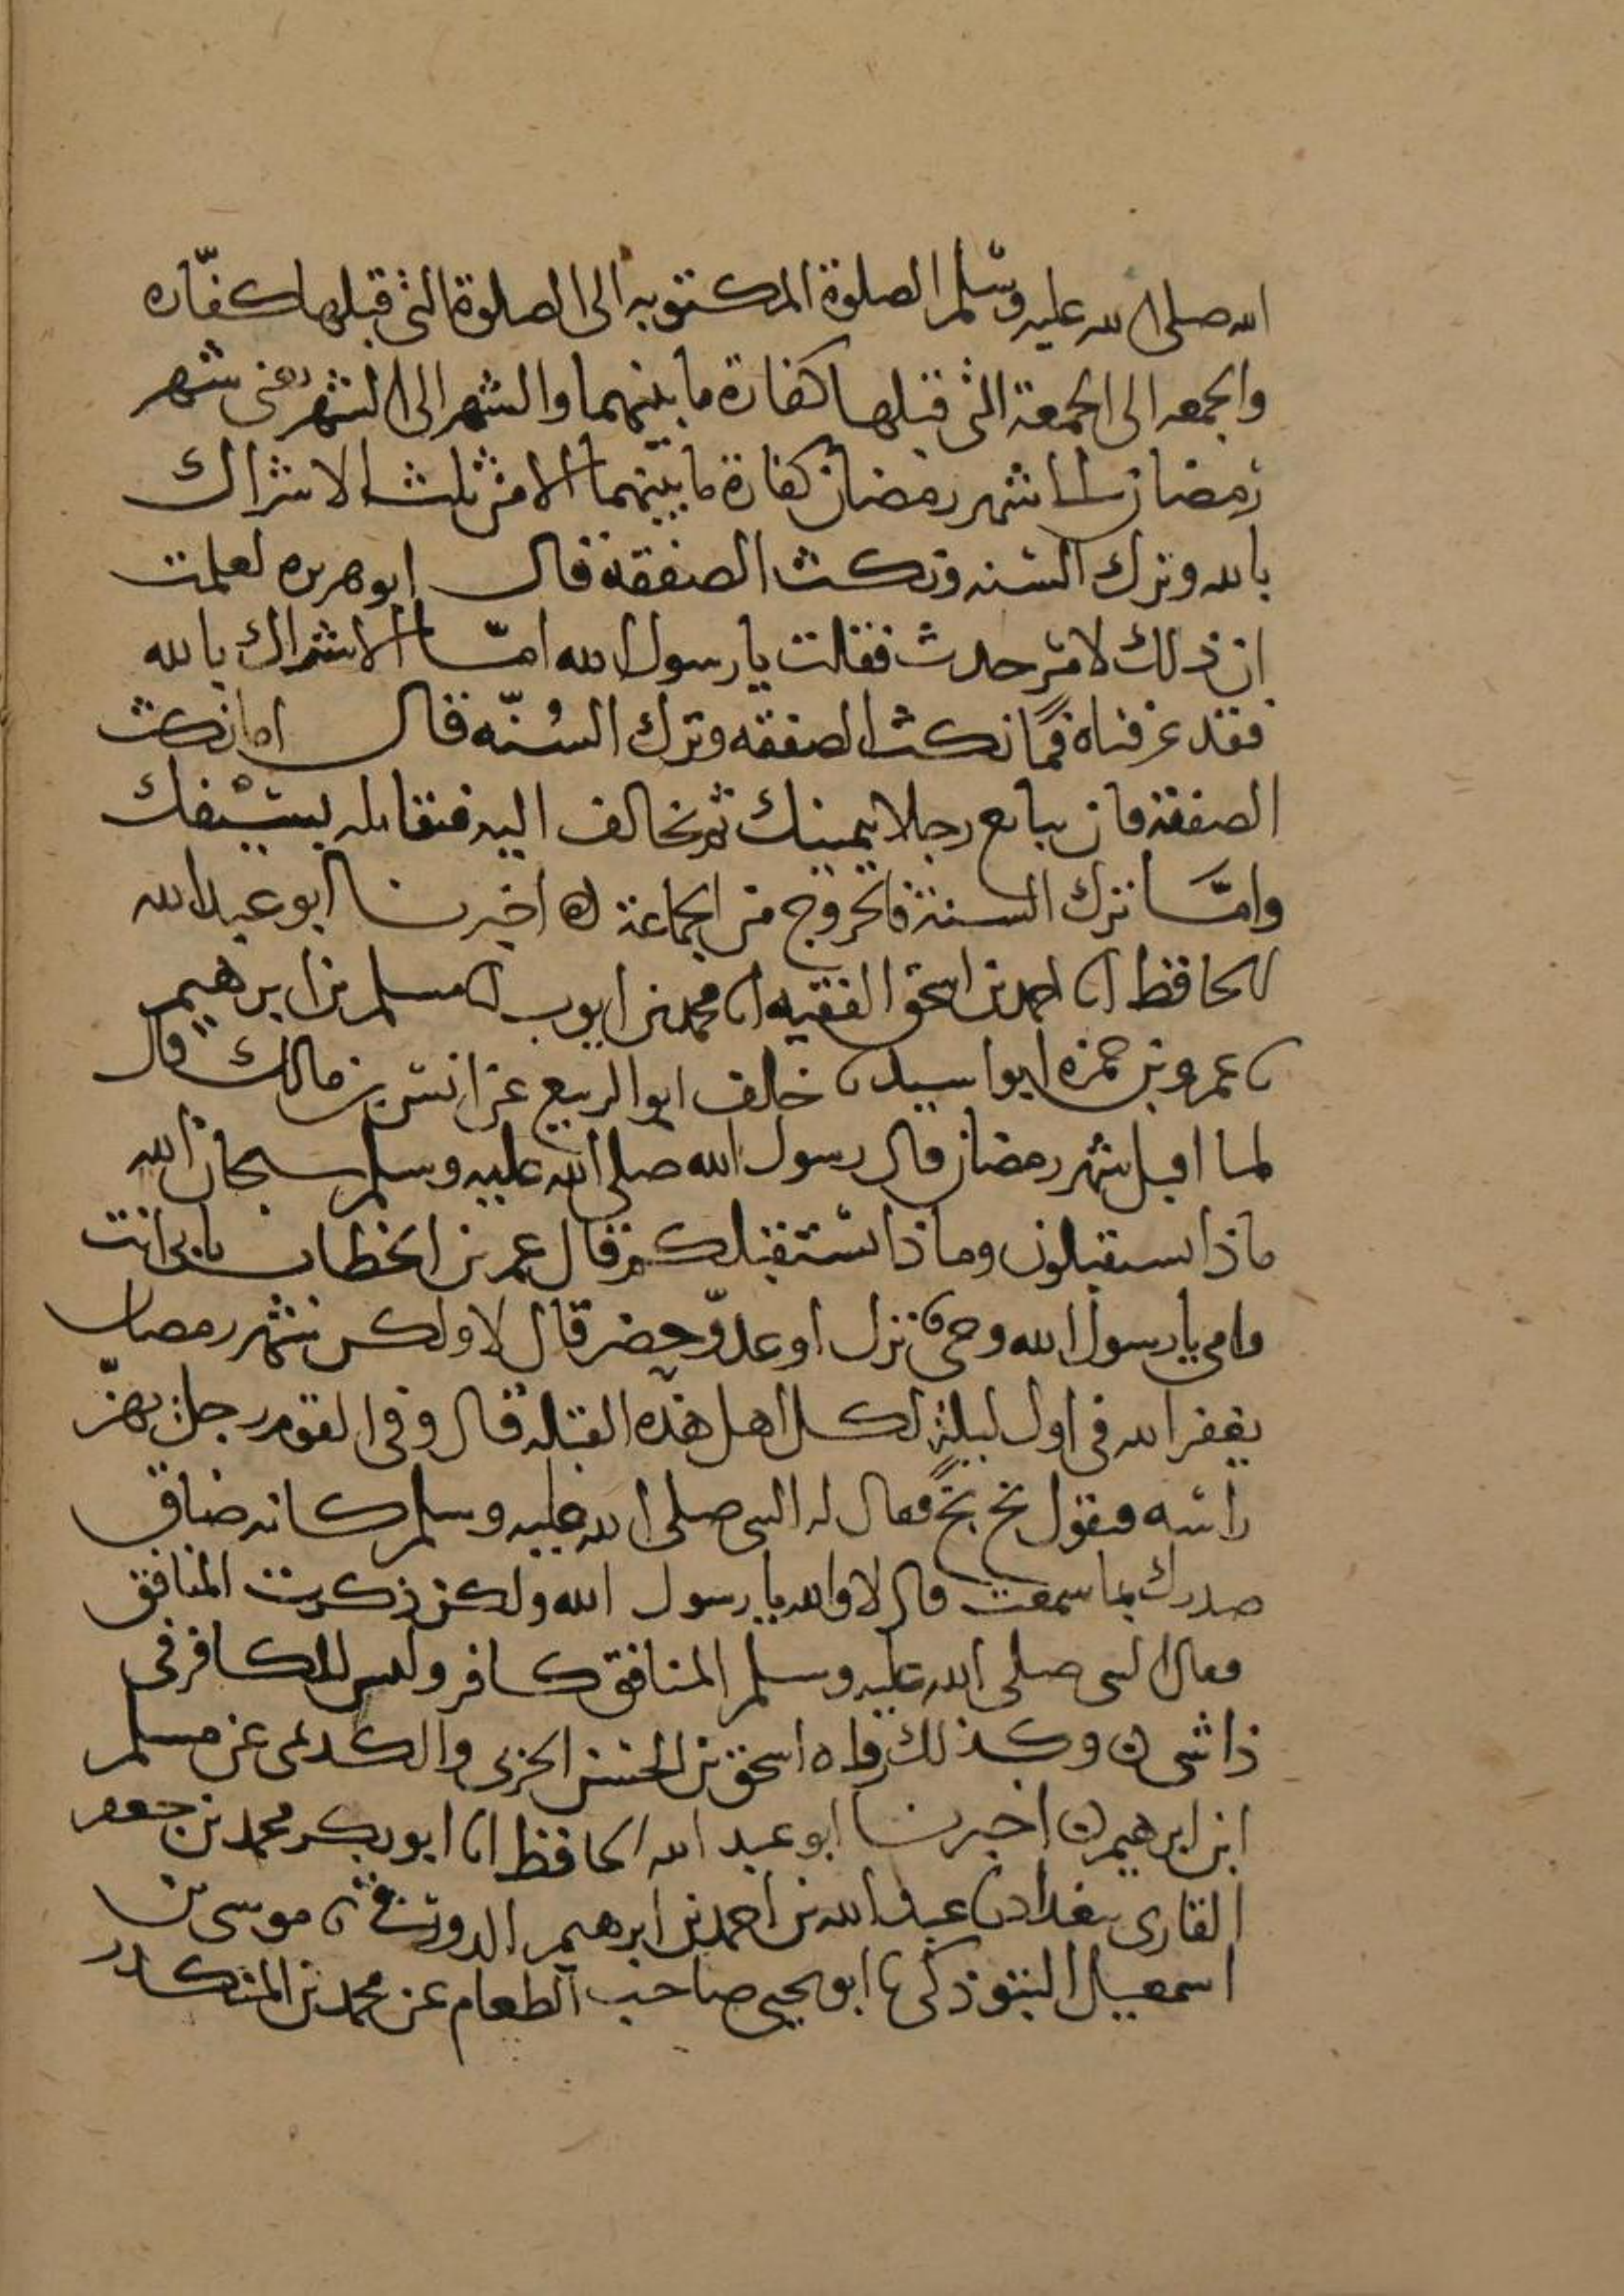 الله صلى الله عليه وسلم الصلوة المكتوبه الى الصلوة التي قبلها كفّاره
والجمعه الى الجمعة التي قبلها كفارة ما بينهما والشهر الى الشهر يعني شهر
رمضان الى شهر رمضان كفارة ما بينهما الا من ثلث الاشراك
بالله وترك السنه ونكث الصفقة قال ابو هريره فعلمت
ان ذلك لامر حدث فقلت يا رسول الله امّا الاشراك بالله
فقد عرفناه فما نكث الصفقه وترك السُنّه قال اما نكث
الصفقة فان تبايع رجلا بيمينك ثم تخالف اليه فتقاتله بسيفك
وامّا ترك السنة فالخروج من الجماعة ه اخبرنا ابو عبد الله
الحافظ انا احمد بن اسحق الفقيه انا محمد بن ايوب نا مسلم بن ابرهيم
نا عمرو بن حمزه ابو اسيد نا خلف ابو الربيع عن انس بن مالك قال
لما اقبل شهر رمضان قال رسول الله صلى الله عليه وسلم سبحان الله
ماذا تستقبلون وماذا يستقبلكم قال عمر بن الخطاب بابي انت
وامي يا رسول الله وحي نزل او عدوّ حضر قال لا ولكن شهر رمضان
يغفر الله في اول ليلة لكل اهل هذه القبله قال وفي القوم رجل يهزّ
راسه فيقول بخ بخ فقال له النبي صلى الله عليه وسلم كانه ضاق
صدرك بما سمعت قال لا والله يا رسول الله ولكن ذكرت المنافق
فقال النبي صلى الله عليه وسلم المنافق كافر وليس للكافر في
ذا شي ه وكذلك رواه اسحق بن الحسن الحربي والكديمي عن مسلم
ابن ابرهيم ه اخبرنا ابو عبد الله الحافظ انا ابو بكر محمد بن جعفر
القاري ببغداد نا عبد الله بن احمد بن ابرهيم الدورقي نا موسى بن
اسمعيل التبوذكي نا ابو يحيى صاحب الطعام عن محمد بن المنكدر